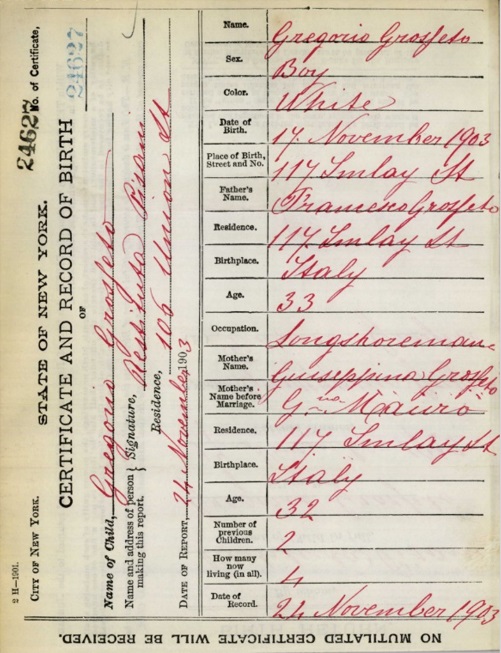 2 H—1901.
CITY OF NEW YORK.
STATE OF NEW YORK.
24627 No. of Certificate,
24627
CERTIFICATE AND RECORD OF BIRTH
OF
Name of Child, Gregorio Grosfeto
Name and address of person making this report. } Signature, Restituta Pisani
Residence, 106 Union St
DATE OF REPORT, 24 November 1903
Name. Gregorio Grosfeto
Sex. Boy
Color. White
Date of Birth. 17. November 1903
Place of Birth, Street and No. 117 Imlay St
Father's Name. Francesco Grosfeto
Residence. 117 Imlay St
Birthplace. Italy
Age. 33
Occupation. Longshoreman
Mother's Name. Giuseppina Grosfeto
Mother's Name before Marriage. G.ina Mauro
Residence. 117 Imlay St
Birthplace. Italy
Age. 32
Number of previous Children. 2
How many now living (in all). 4
Date of Record. 24 November 1903
NO MUTILATED CERTIFICATE WILL BE RECEIVED.